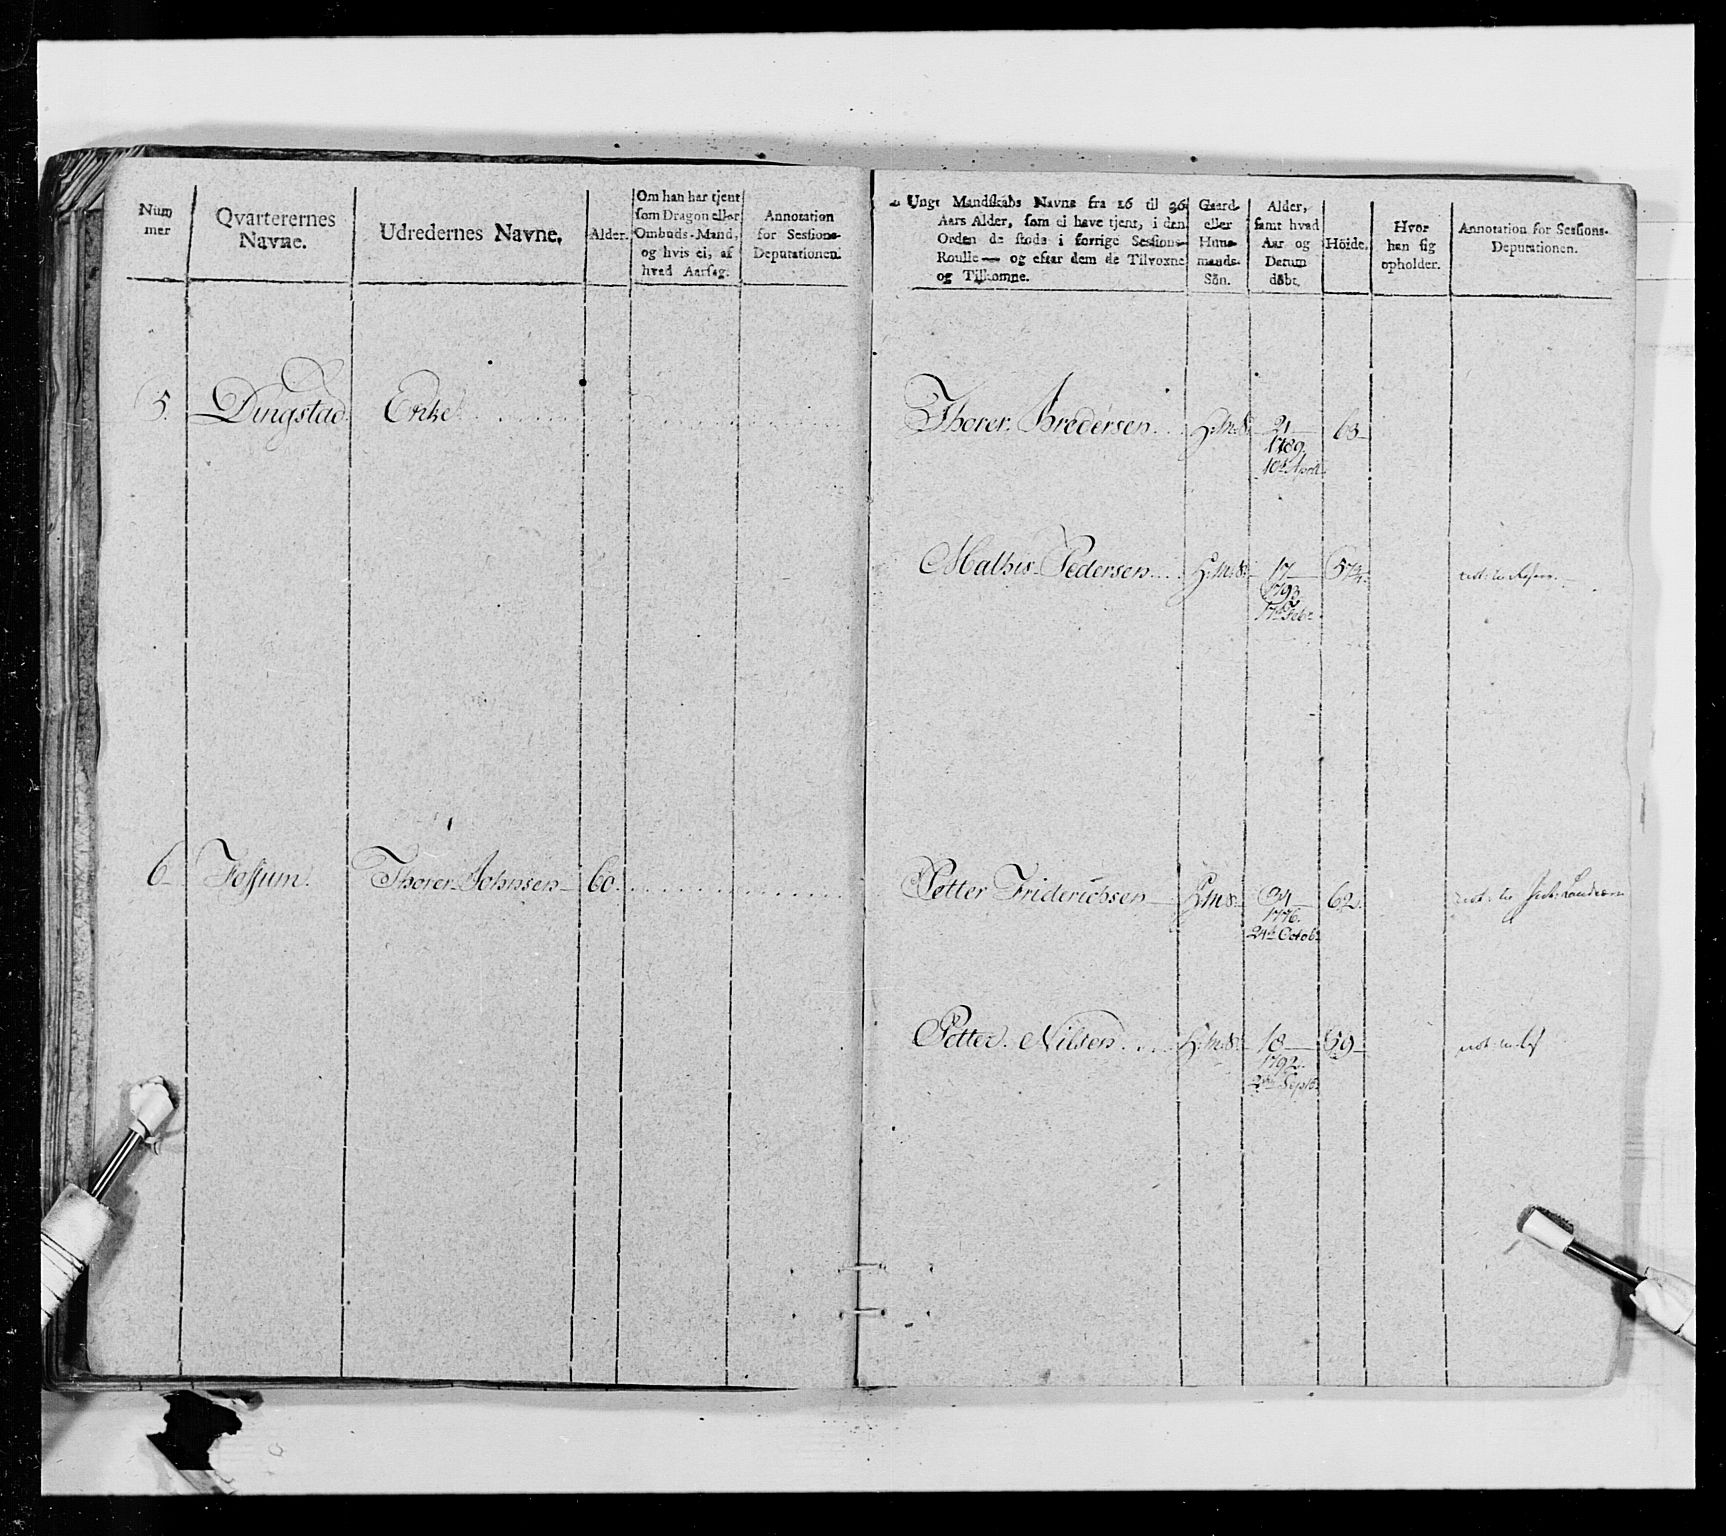 Num
mer
Qvarterernes
Navne.
Udredernes Navne.
Alder.
Om han har tjent
som Dragon eller
Ombuds-Mand,
og hvis ei, af
hvad Aarsag.
Annotation
for Sessions-
Deputationen.
5. Dingstad. Enke
6. Fossum. Thorer Johnsen 60.
Ungt Mandskabs Navne fra 16 til 36
Aars Alder, som ei have tjent, i den
Orden de stode i forrige Sessions-
Roulle — og efter dem de Tilvoxne
og Tilkomne.
Gaard-
eller
Huus-
mands-
Sön.
Alder,
samt hvad
Aar og
Datum
döbt.
Höide.
Hvor
han sig
opholder.
Annotation for Sessions-
Deputationen.
Thorer Bredersen H:M:S. 21 63
1789.
10de April
Mathis Pedersen H:M:S. 17 57¾
1793
17de Febr
Petter Friderichsen H:M:S. 34 62.
1776.
24de Octobr
Petter Nilsen H:M:S. 18 59
1792.
Septbr